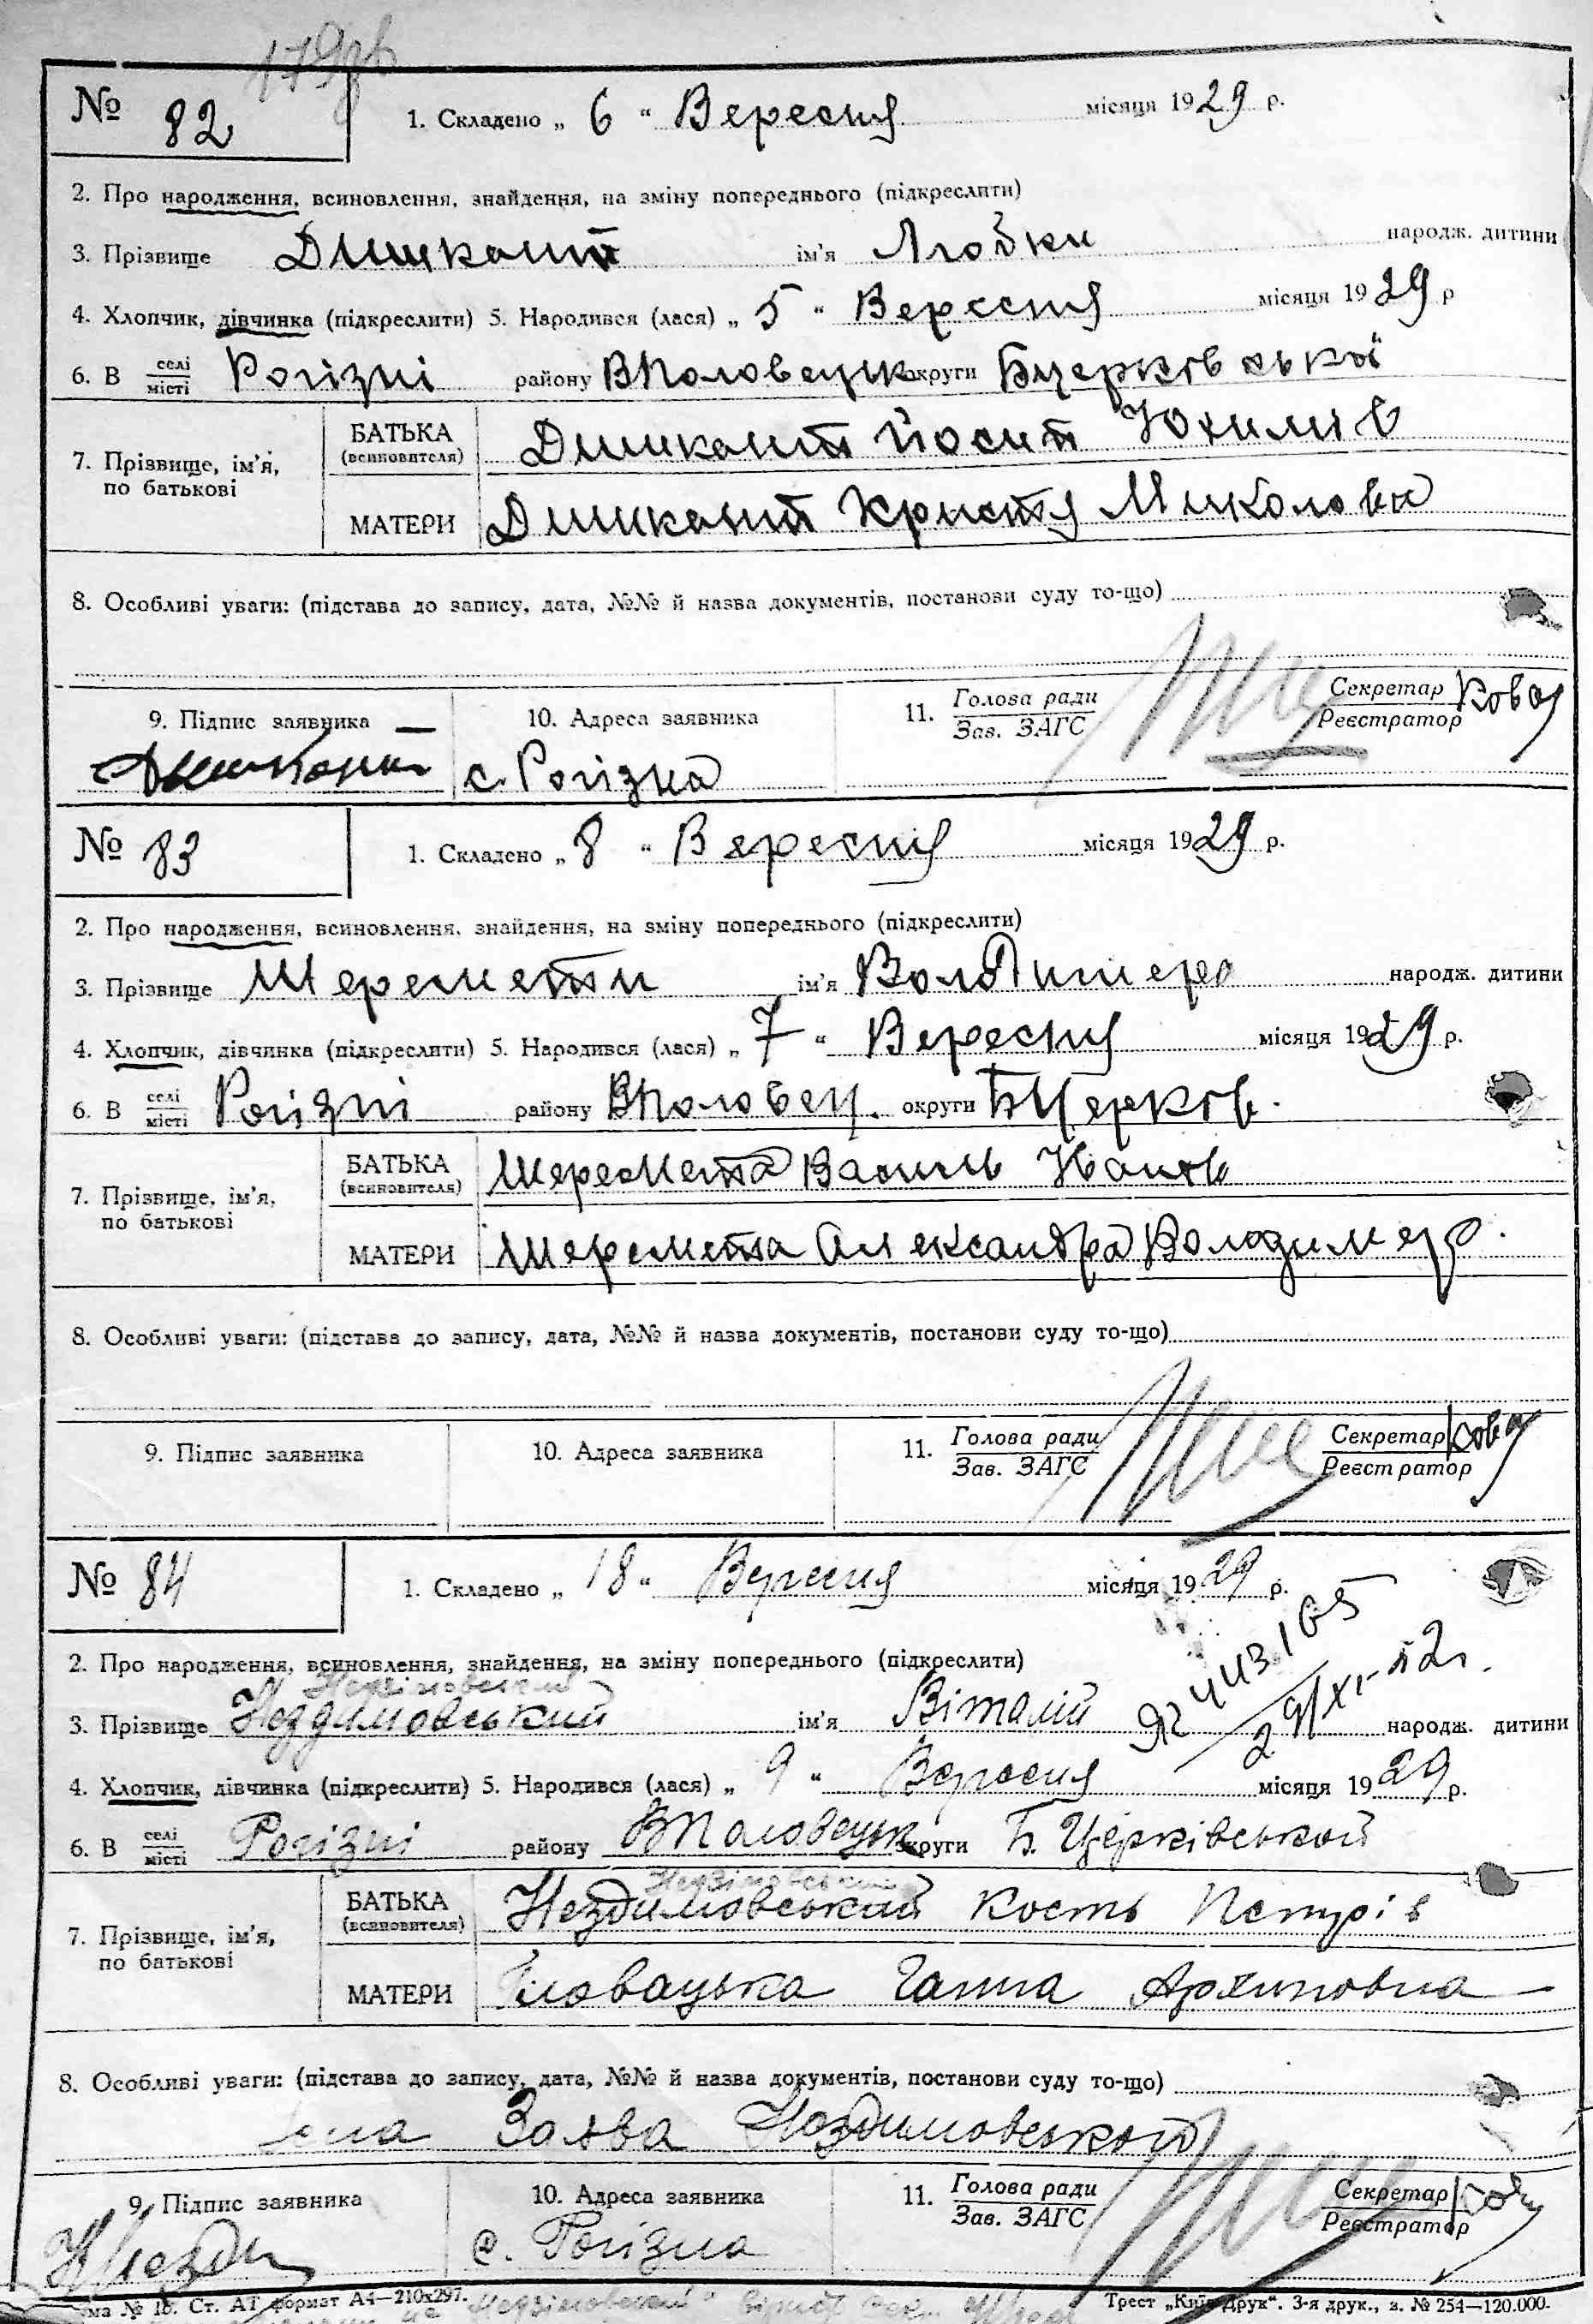 № 82
1. Складено „ 6 “ Вересня місяця 1929 р.
2. Про народження, всиновлення, знайдення, на зміну попереднього (підкреслити)
3. Прізвище Дишкант ім'я Любки народж. дитини
4. Хлопчик, дівчинка (підкреслити) 5. Народився (лася) „ 5 “ Вересня місяця 1929 р
6. В селі місті Рогізні району ВПоловецьк округи Бцерковської
7. Прізвище, ім'я, по батькові
БАТЬКА (всиновителя) Дишкант Йосип Юхимів
МАТЕРИ Дишкант Христя Миколова
8. Особливі уваги: (підстава до запису, дата, №№ й назва документів, постанови суду то-що)
9. Підпис заявника 10. Адреса заявника 11. Голова ради Зав. ЗАГС Секретар Реєстратор
Дишкант с. Рогізна
№ 83
1. Складено „ 8 “ Вересня місяця 1929 р.
2. Про народження, всиновлення, знайдення, на зміну попереднього (підкреслити)
3. Прізвище Шеремети ім'я народж. дитини
4. Хлопчик, дівчинка (підкреслити) 5. Народився (лася) „ 7 “ Вересня місяця 1929 р.
6. В селі місті Рогізні району ВПоловец. округи БЦерков.
7. Прізвище, ім'я, по батькові
БАТЬКА (всиновителя) Шеремета Василь Іванів
МАТЕРИ Шеремета Александра Володимер.
8. Особливі уваги: (підстава до запису, дата, №№ й назва документів, постанови суду то-що)
9. Підпис заявника 10. Адреса заявника 11. Голова ради Зав. ЗАГС Секретар Реєстратор
№ 84
1. Складено „ 18 “ Вересня місяця 1929 р.
2. Про народження, всиновлення, знайдення, на зміну попереднього (підкреслити)
3. Прізвище Нездимовський ім'я Віталій народж. дитини
4. Хлопчик, дівчинка (підкреслити) 5. Народився (лася) „ 9 “ Вересня місяця 1929 р.
6. В селі місті Рогізні району ВПоловецьк округи Б. Церківської
7. Прізвище, ім'я, по батькові
БАТЬКА (всиновителя) Нездимовський Кость Петрів
МАТЕРИ Ганна Архиповна
8. Особливі уваги: (підстава до запису, дата, №№ й назва документів, постанови суду то-що)
Заява Нездимовського
9. Підпис заявника 10. Адреса заявника 11. Голова ради Зав. ЗАГС Секретар Реєстратор
с. Рогізна
Ст. АТ формат А4—210х297. Трест „Київ-Друк“. 3-я друк., з. № 254—120.000.